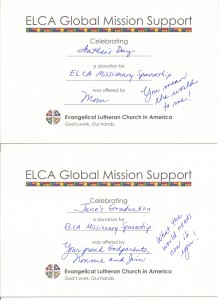 ELCA Global Mission Support
Celebrating
Father's Day
a donation for
ELCA Missionary Sponsorship
was offered by
Mom
You mean
the world
to me!
Evangelical Lutheran Church in America
God's work. Our hands.
ELCA Global Mission Support
Celebrating
Jane's Graduation
a donation for
ELCA Missionary Sponsorship
was offered by
Your proud Godparents,
Nonnie and Jim
What the
world needs
now is
you!
Evangelical Lutheran Church in America
God's work. Our hands.